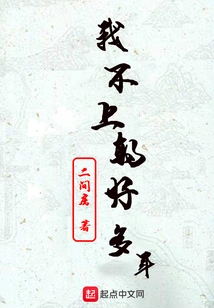 我不上朝好多年
二间 著
起点 起点中文网